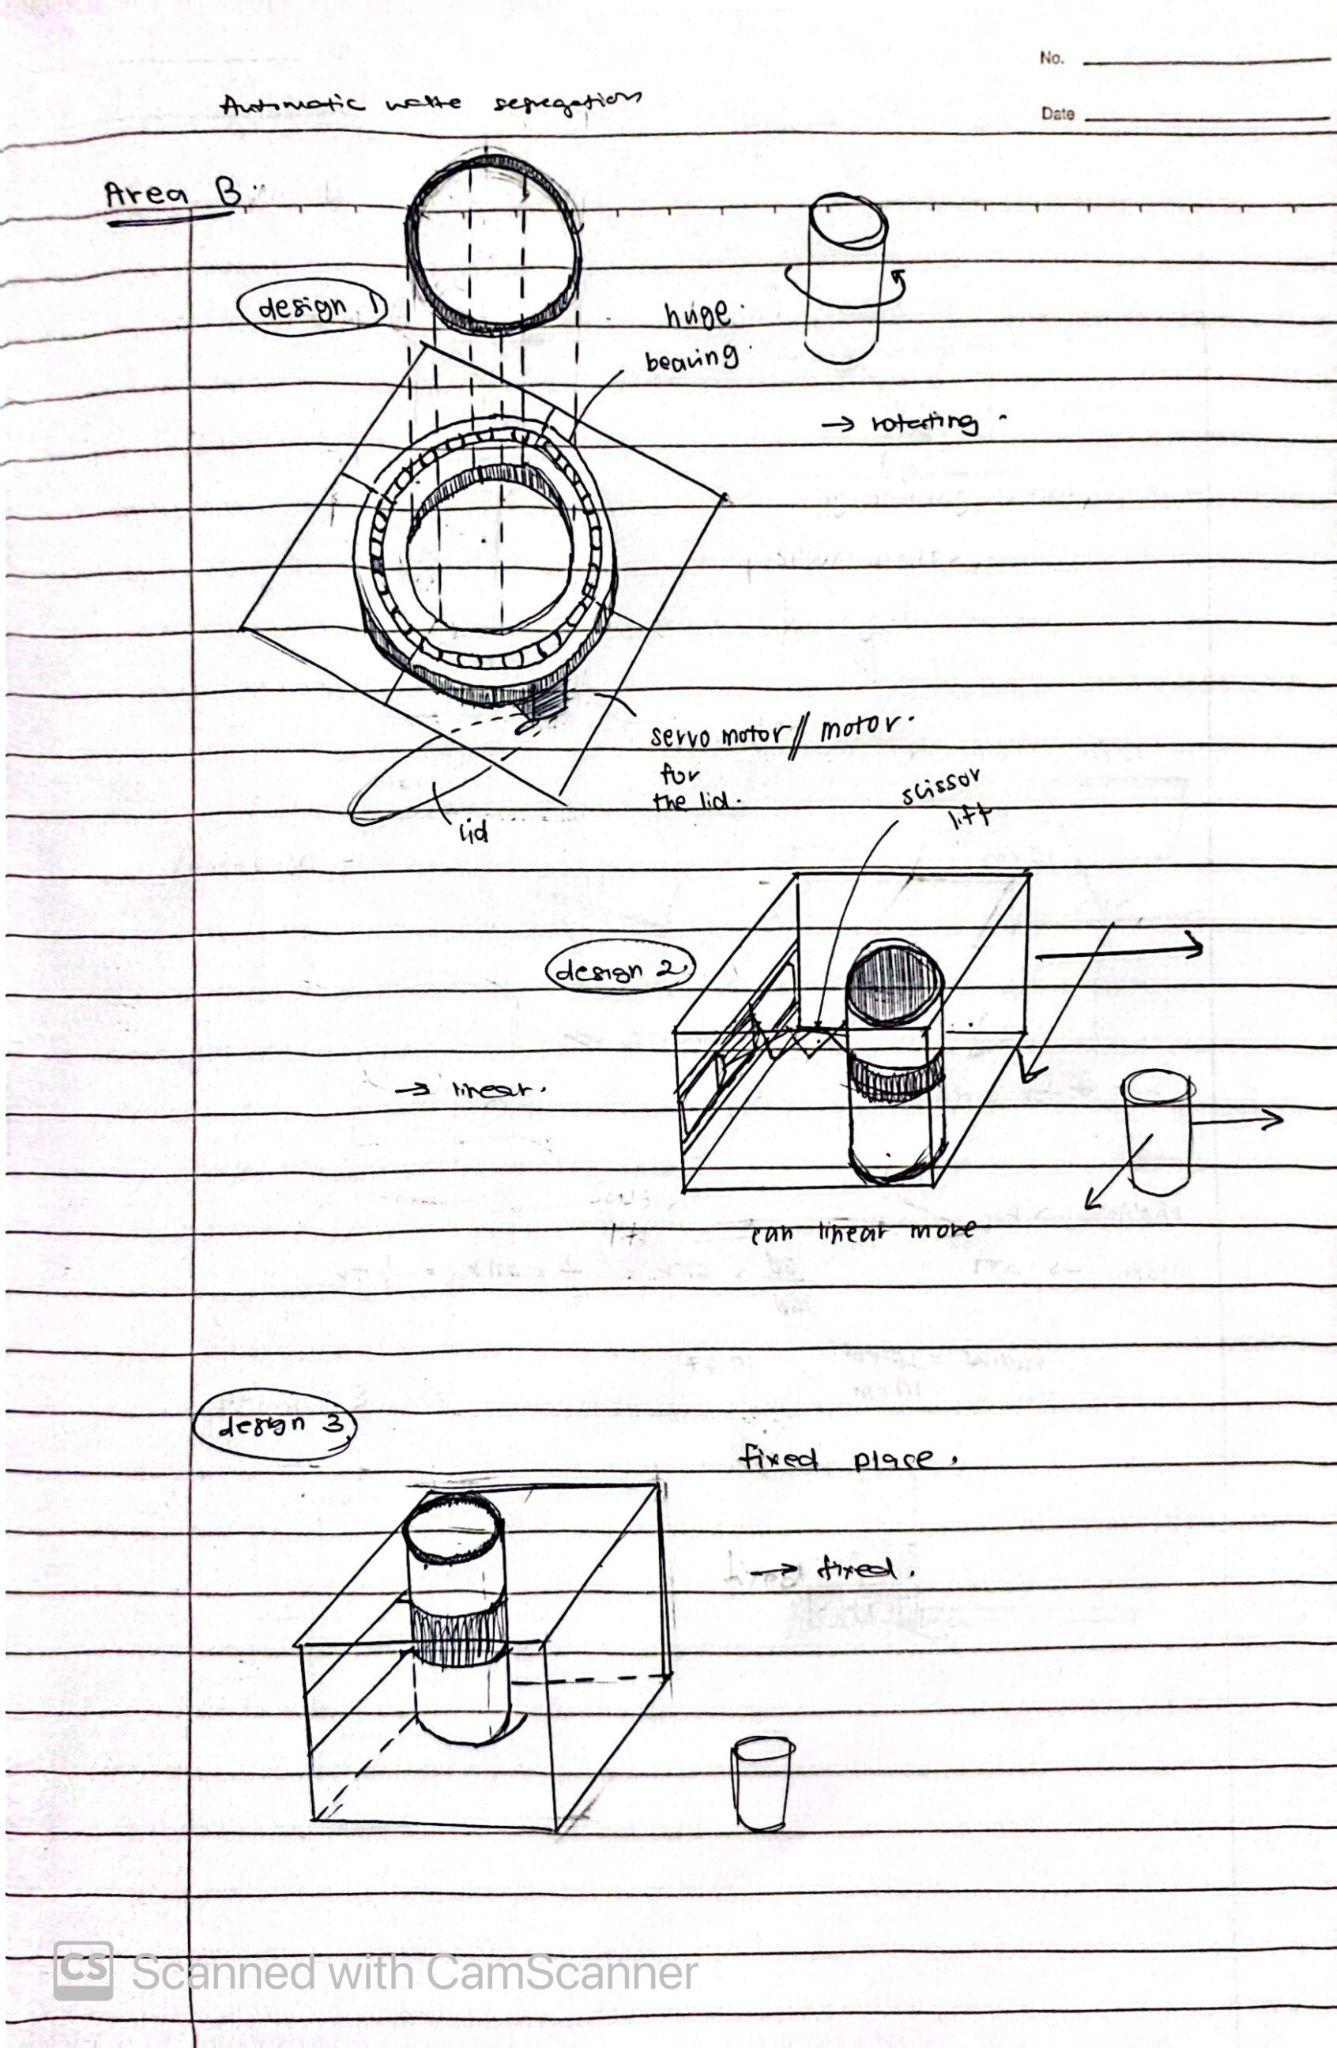 No.
Date
Automatic waste segregation
Area B:
design 1
huge
bearing
→ rotating
servo motor // motor.
for
the lid.
lid
scissor
lift
design 2
→ linear.
can linear more
design 3
fixed place.
→ fixed.
CS Scanned with CamScanner